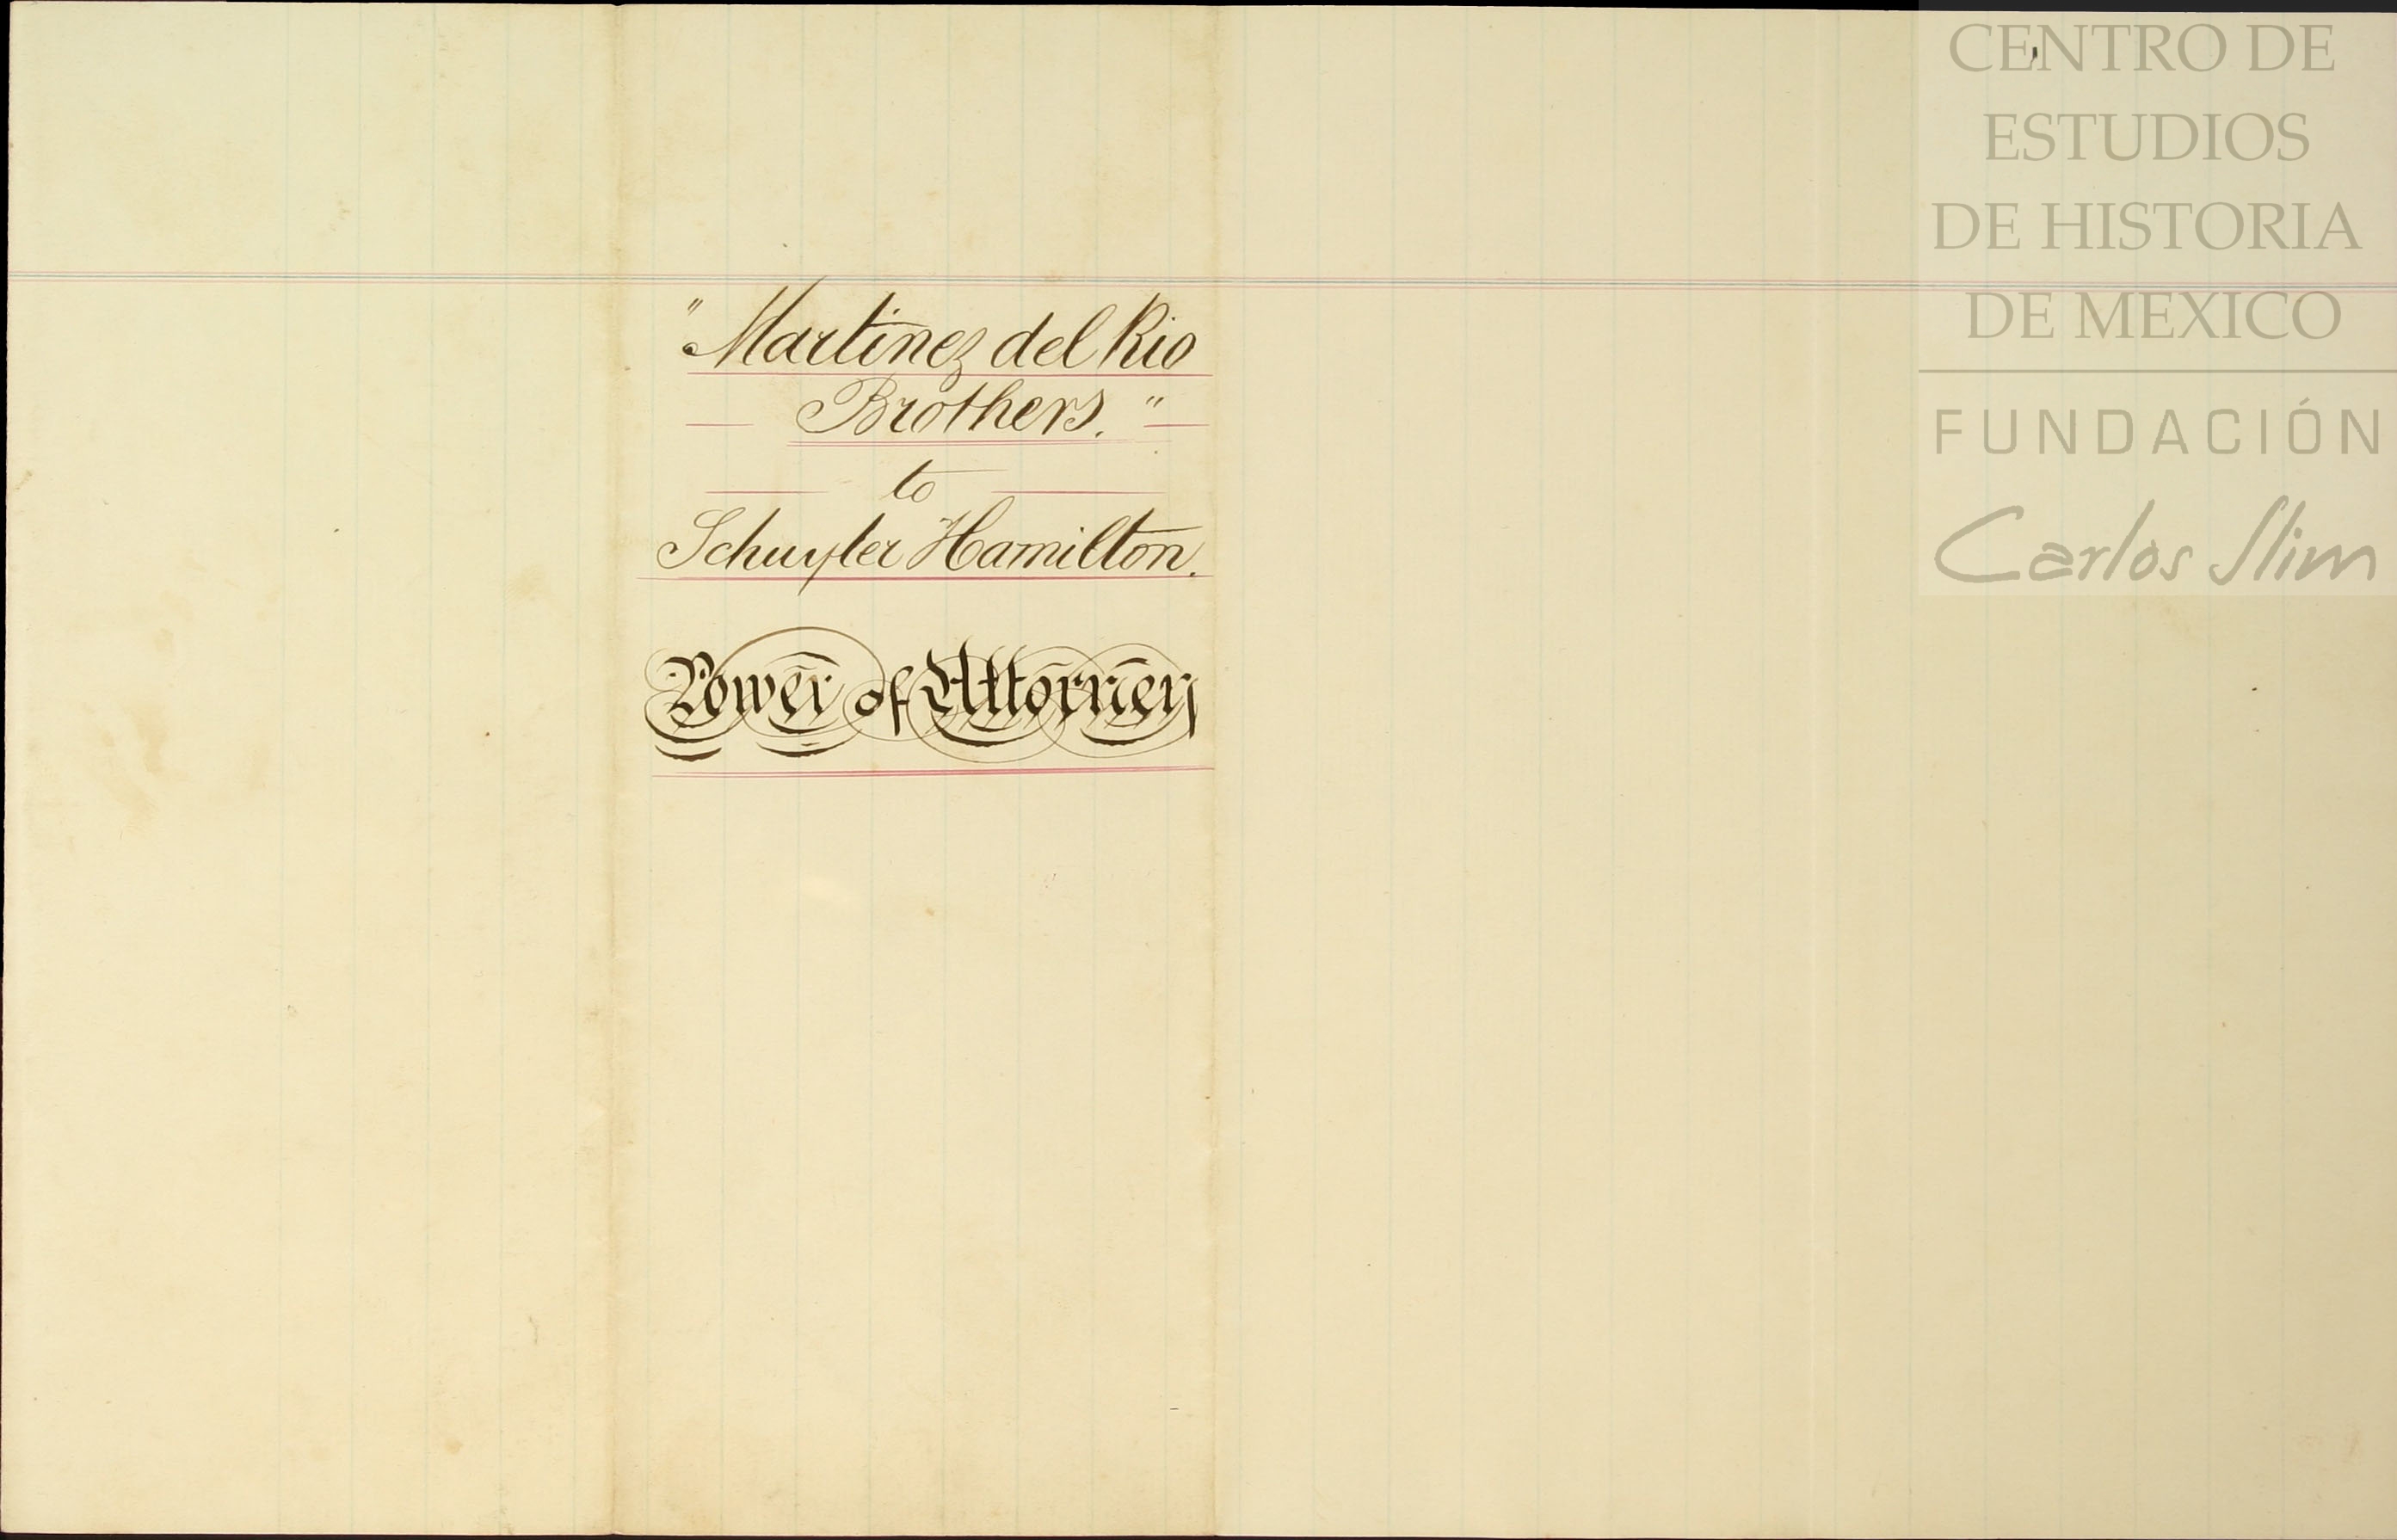 "Martinez del Rio
Brothers."
to
Schuyler Hamilton.
Power of Attorney
CENTRO DE
ESTUDIOS
DE HISTORIA
DE MEXICO
FUNDACIÓN
Carlos Slim